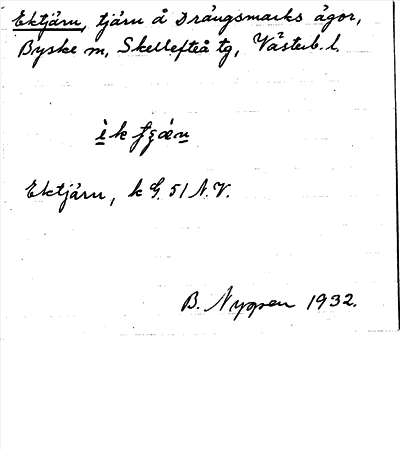 Ektjärn, tjärn å Drängsmarks ägor,
Byske sn, Skellefteå tg, Västerb. l.
Ektjärn, k G. 51 N.V.
B. Nyman 1932.